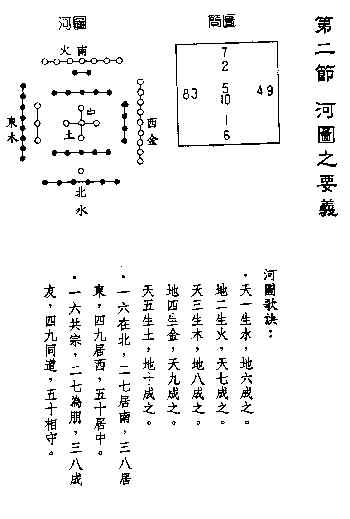 第二節 河圖之要義
簡圖
7
2
83
5
10
49
1
6
河圖
南
火
東
木
中
土
西
金
北
水
河圖歌訣：
・天一生水，地六成之。
地二生火，天七成之。
天三生木，地八成之。
地四生金，天九成之。
天五生土，地十成之。
・一六在北，二七居南，三八居
東，四九居西，五十居中。
・一六共宗，二七為朋，三八成
友，四九同道，五十相守。